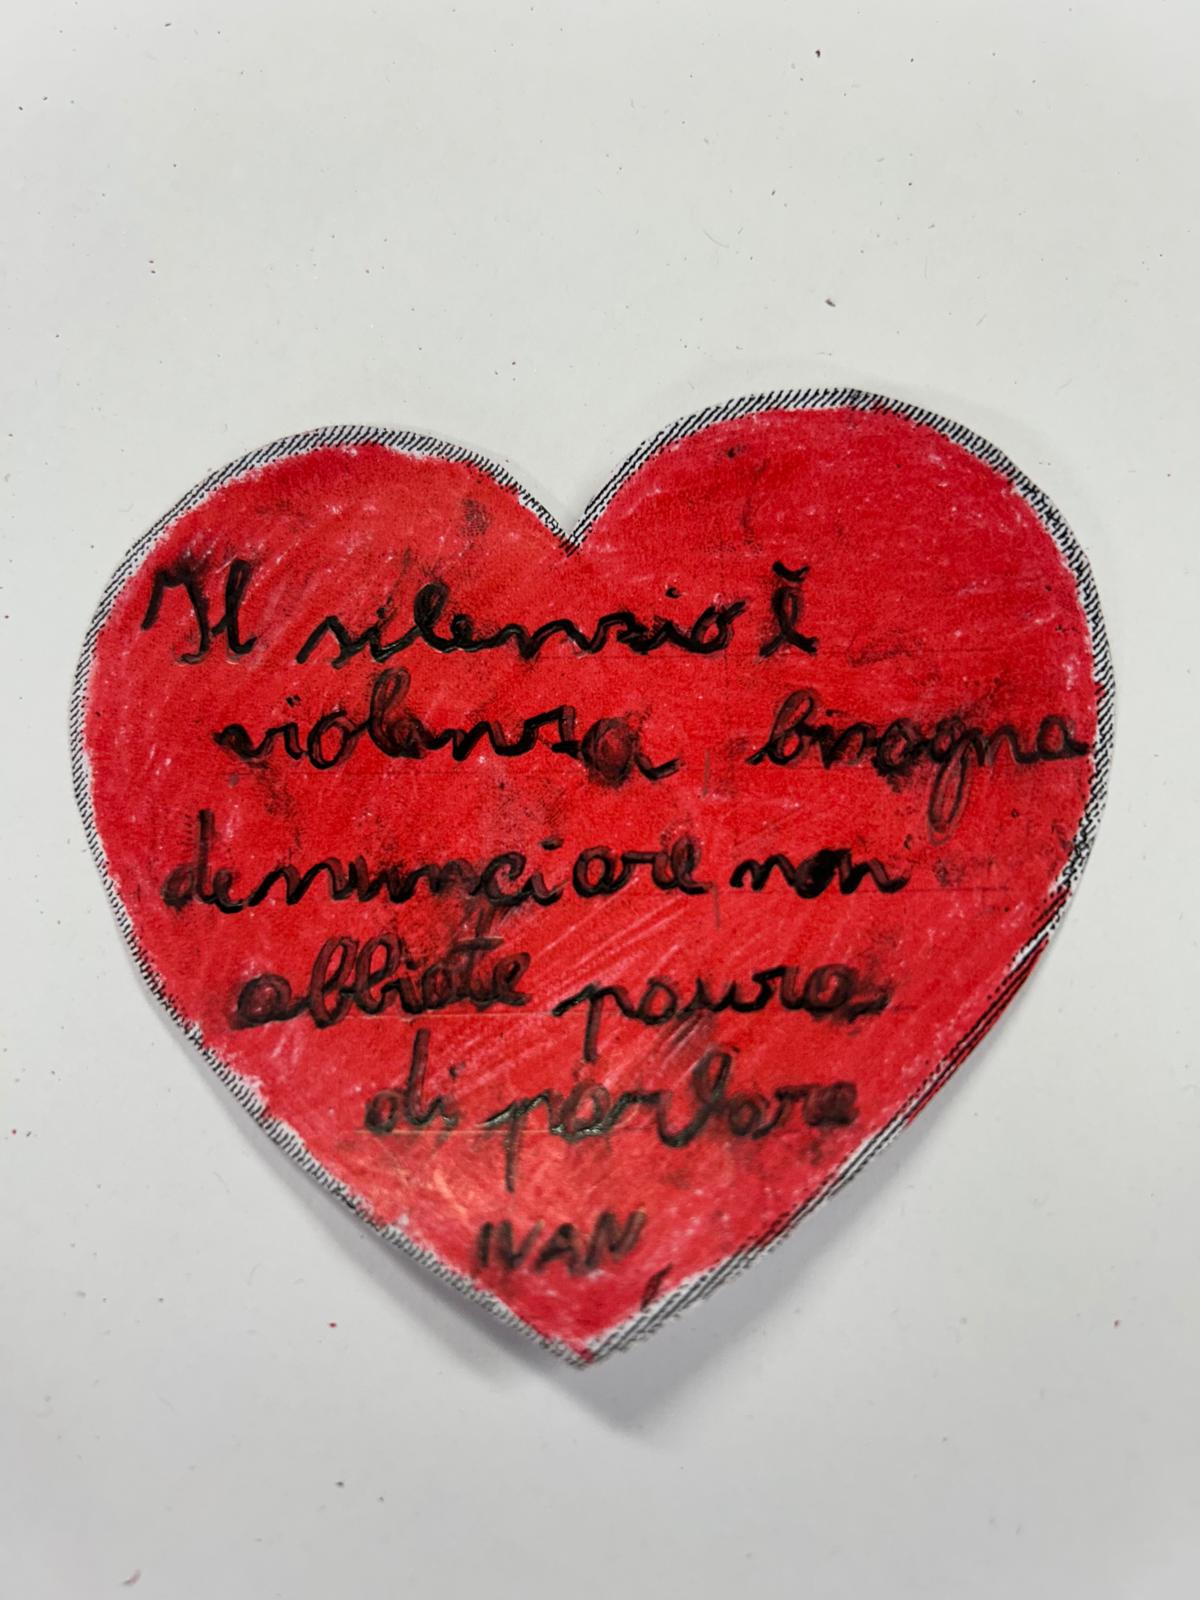 Il silenzio è
violenza bisogna
denunciare non
abbiate paura
di parlare
IVAN